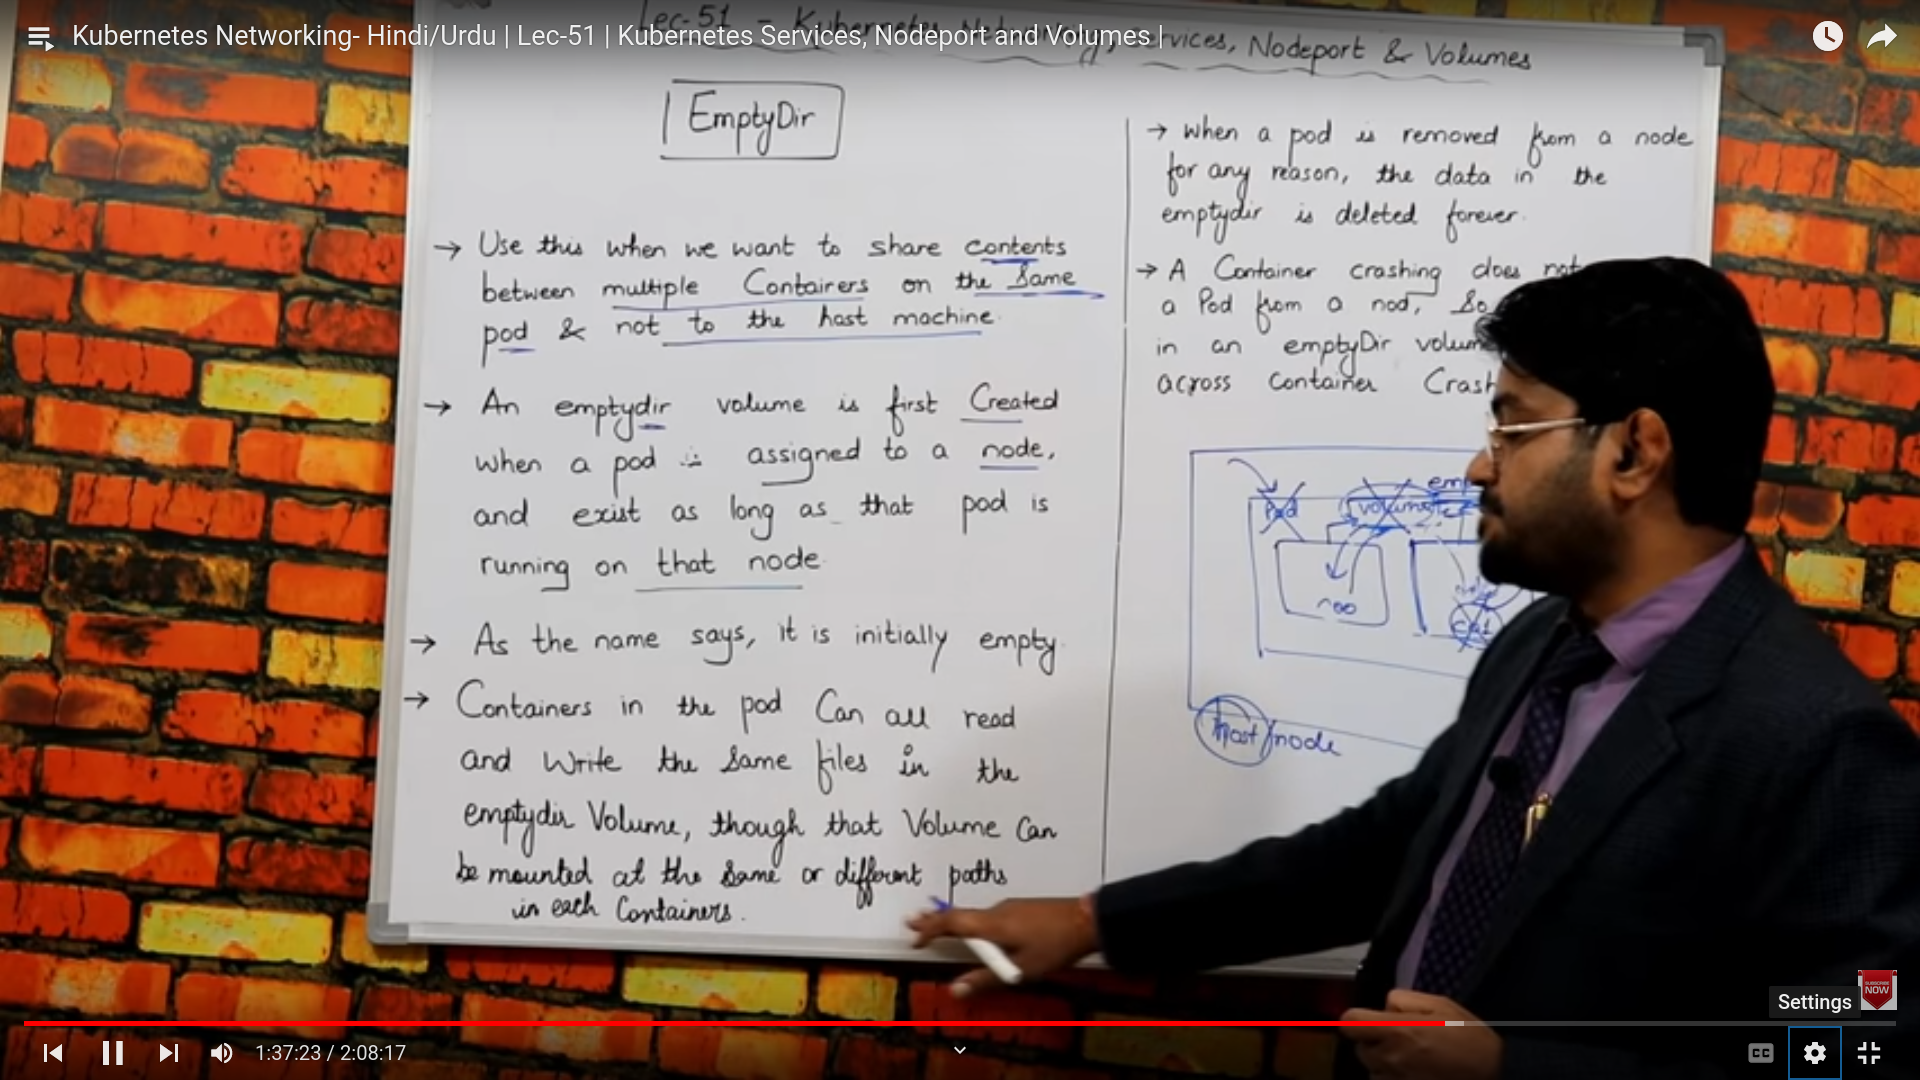 Kubernetes Networking- Hindi/Urdu | Lec-51 | Kubernetes Services, Nodeport and Volumes |
Lec-51 - Kubernetes Networking, Services, Nodeport & Volumes
EmptyDir
→ Use this when we want to share contents
between multiple Containers on the Same
pod & not to the host machine.
→ An emptydir volume is first Created
when a pod is assigned to a node,
and exist as long as that pod is
running on that node
→ As the name says, it is initially empty.
→ Containers in the pod Can all read
and Write the Same files in the
emptydir Volume, though that Volume Can
be mounted at the Same or different paths
in each Containers.
→ when a pod is removed from a node
for any reason, the data in the
emptydir is deleted forever.
→ A Container crashing does not
a Pod from a nod, So
in an emptyDir volume
across Container Crash
Pod
host/node
SUBSCRIBE
NOW
Settings
1:37:23 / 2:08:17
CC